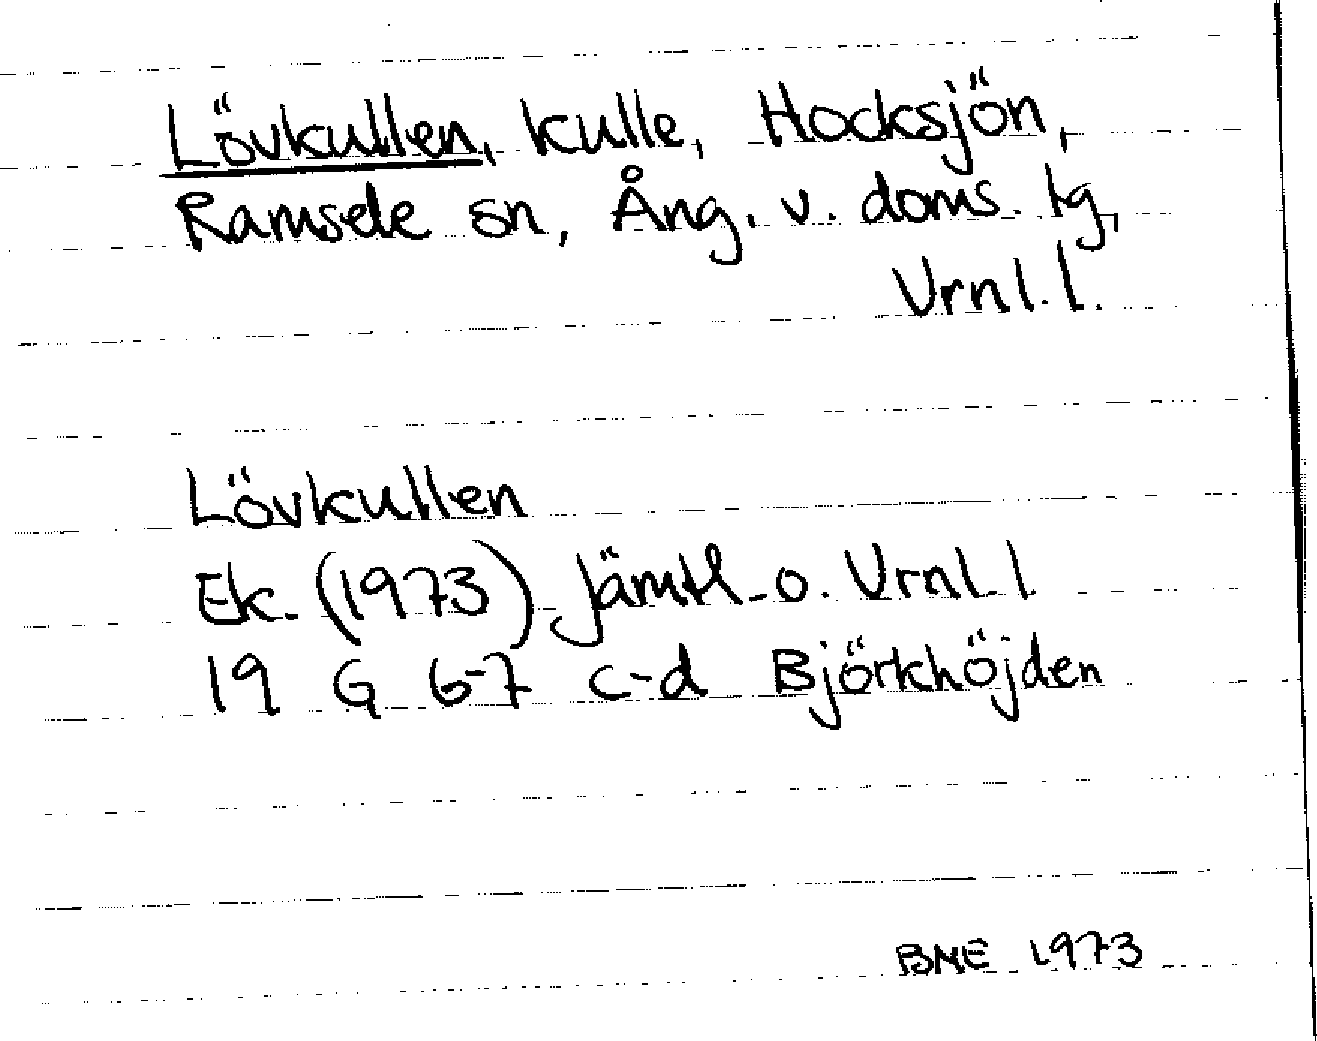 Lövkullen, kulle, Hocksjön,
Ramsele sn, Ång. v. doms. tg,
Vrnl. l.
Lövkullen
Ek. (1973) Jämtl o. Vrnl. l.
19 G 6-7 c-d Björkhöjden
BME 1973